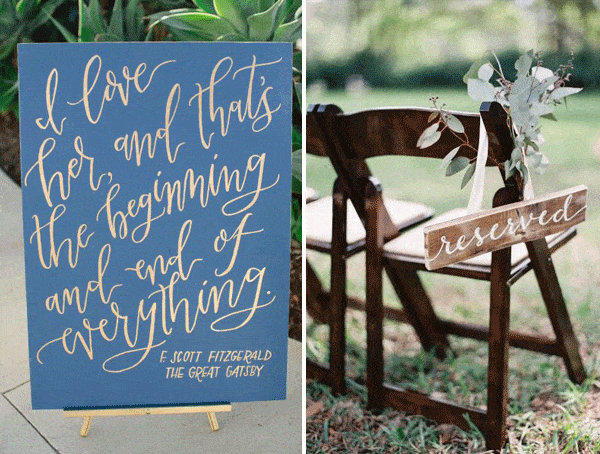 I love
her, and that's
the beginning
and end of
everything.
F. SCOTT FITZGERALD
THE GREAT GATSBY
reserved